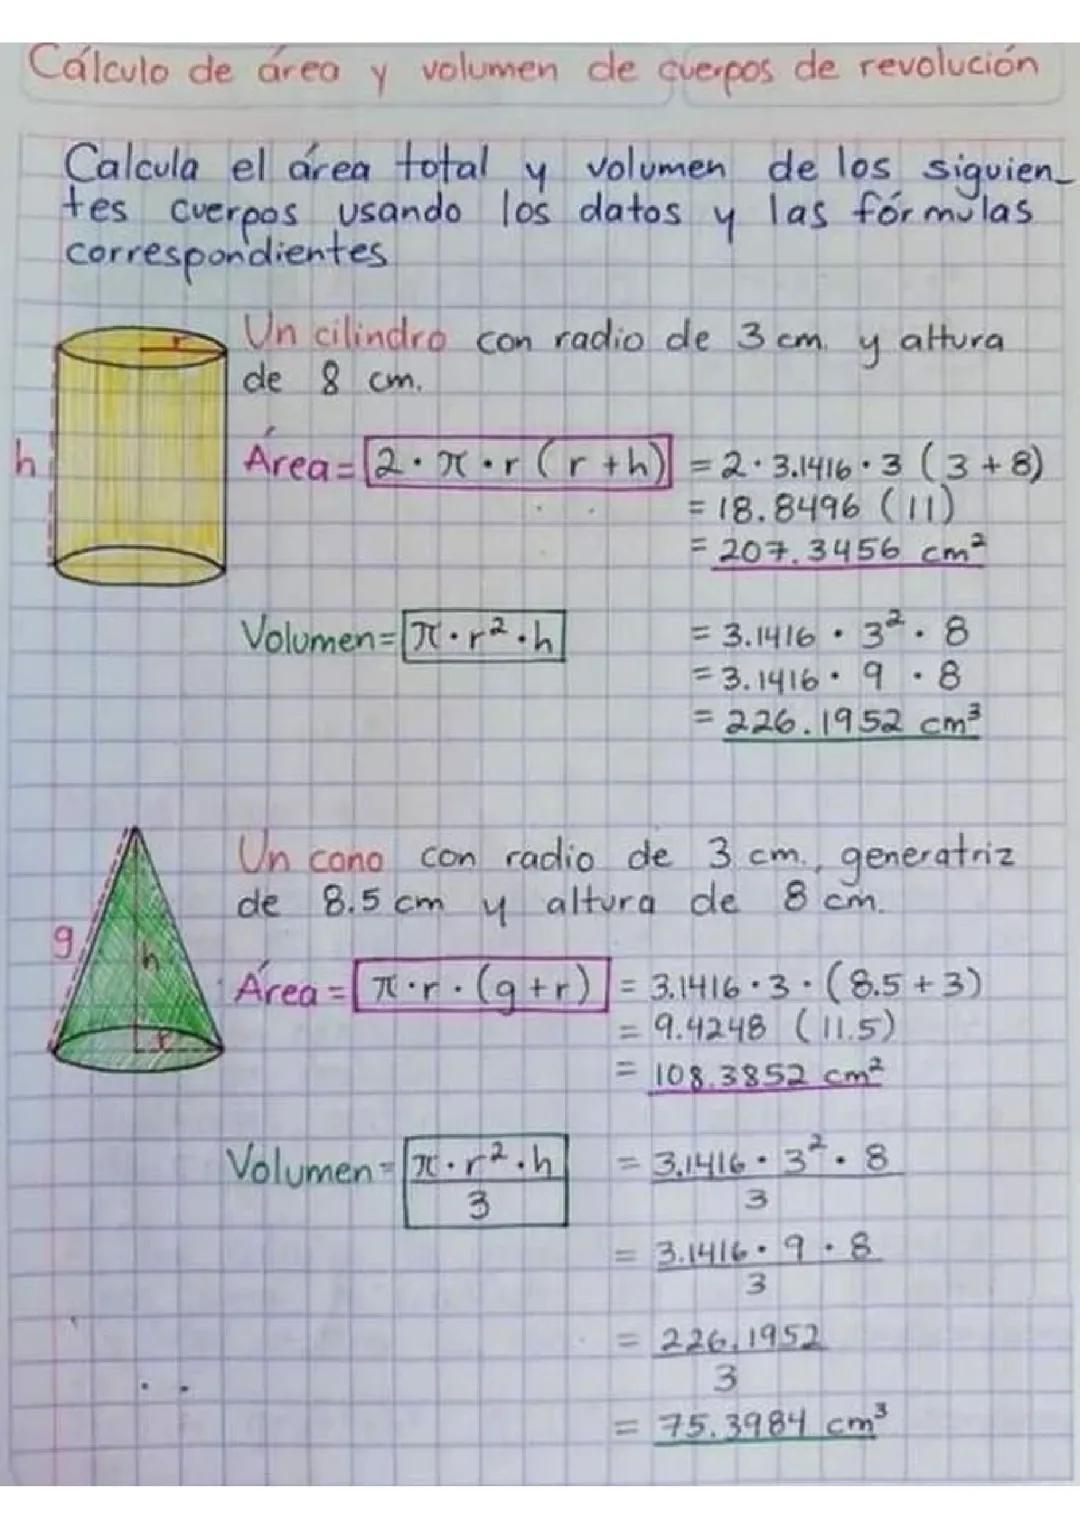 Cálculo de área y volumen de cuerpos de revolución
Calcula el área total y volumen de los siguien_
tes cuerpos usando los datos y las fórmulas
correspondientes
Un cilindro con radio de 3 cm. y altura
de 8 cm.
r
h
Área = 2 · π · r ( r + h ) = 2 · 3.1416 · 3 ( 3 + 8 )
= 18.8496 ( 11 )
= 207.3456 cm²
Volumen = π · r² · h = 3.1416 · 3² · 8
= 3.1416 · 9 · 8
= 226.1952 cm³
Un cono con radio de 3 cm., generatriz
de 8.5 cm y altura de 8 cm.
g
h
r
Área = π · r · ( g + r ) = 3.1416 · 3 · ( 8.5 + 3 )
= 9.4248 ( 11.5 )
= 108.3852 cm²
Volumen = π · r² · h = 3.1416 · 3² · 8
3 3
= 3.1416 · 9 · 8
3
= 226.1952
3
= 75.3984 cm³